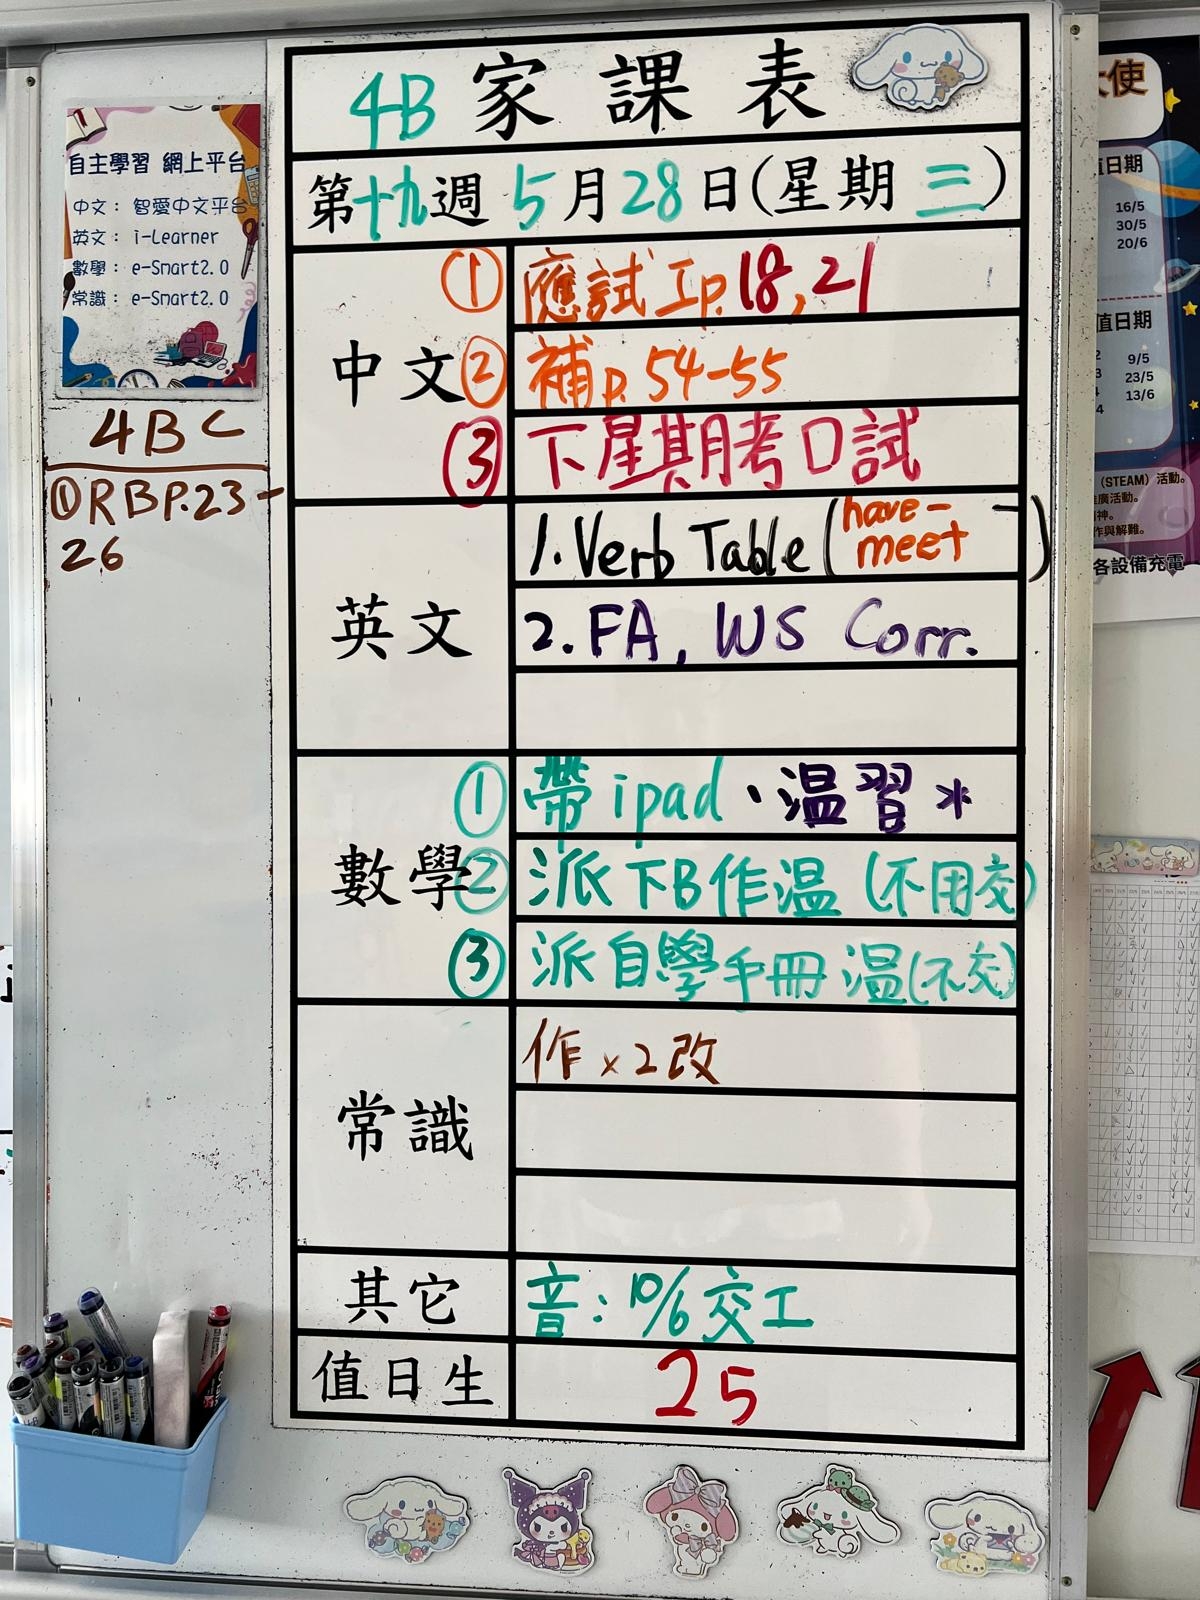 4B 家課表
第十九週 5月28日(星期三)
中文
① 應試工p.18,21
② 補p.54-55
③ 下星期考口試
英文
1. Verb Table (have-meet)
2. FA, WS Corr.
數學
① 帶ipad、溫習*
② 派下B作溫(不用交)
③ 派自學手冊溫(不交)
常識
作x2改
其它
音:10/6交工
值日生
25
自主學習 網上平台
中文: 智愛中文平台
英文: i-Learner
數學: e-Smart2.0
常識: e-Smart2.0
4BC
① RB P.23-
26
使
值日期
16/5
30/5
20/6
值日期
9/5
23/5
13/6
(STEAM)活動。
廣活動。
神。
作與解難。
各設備充電